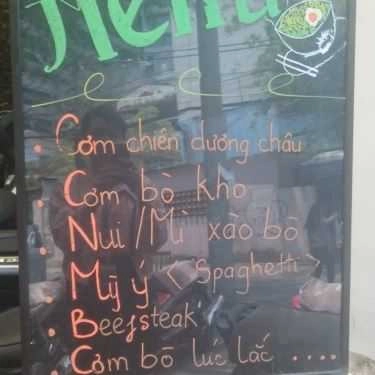 Menu
. Cơm chiên dương châu
. Cơm bò kho
. Nui / Mì xào bò
. Mỹ ý < Spaghetti >
. Beefsteak
. Cơm bò lúc lắc ....